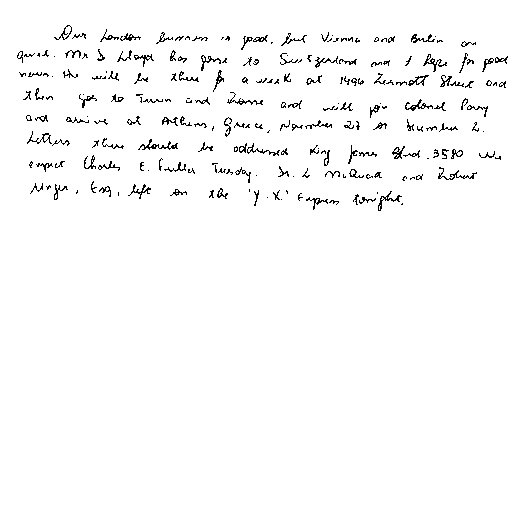 Our London business is good, but Vienna and Berlin are
quiet. Mr D Lloyd has gone to Switzerland and I hope for good
news. He will be there for a week at 1496 Zermott Street and
then goes to Turin and Rome and will join Colonel Parry
and arrive at Athens, Greece, November 27 or December 2.
Letters there should be addressed King James Blvd. 3580 We
expect Charles E. Fuller Tuesday. Dr. L McQuaid and Robert
Unger, Esq., left on the 'Y.X.' Express tonight.